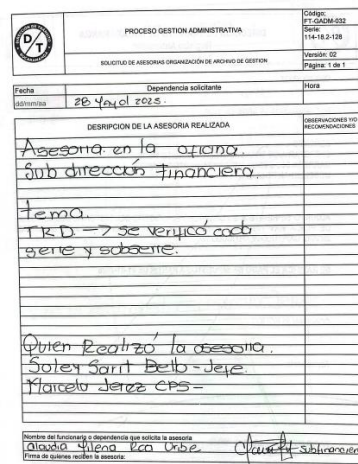 PROCESO GESTION ADMINISTRATIVA
Código:
FT-GADM-032
Serie:
114-18.2-128
SOLICITUD DE ASESORIAS ORGANIZACIÓN DE ARCHIVO DE GESTION
Versión: 02
Página: 1 de 1
Fecha
Dependencia solicitante
Hora
dd/mm/aa
28 Mayo/ 2025.
DESRIPCION DE LA ASESORIA REALIZADA
OBSERVACIONES Y/O
RECOMENDACIONES
Asesoria en la oficina.
Sub dirección Financiera.
tema.
TRD -> se verificó cada
serie y subserie.
Quien Realizó la asesoria.
Soley Sarit Bello - Jefe.
Marcela Jerez CPS-
Nombre del funcionario o dependencia que solicita la asesoria
Claudia Milena Roa Uribe
Subfinanciera
Firma de quienes reciben la asesoria: